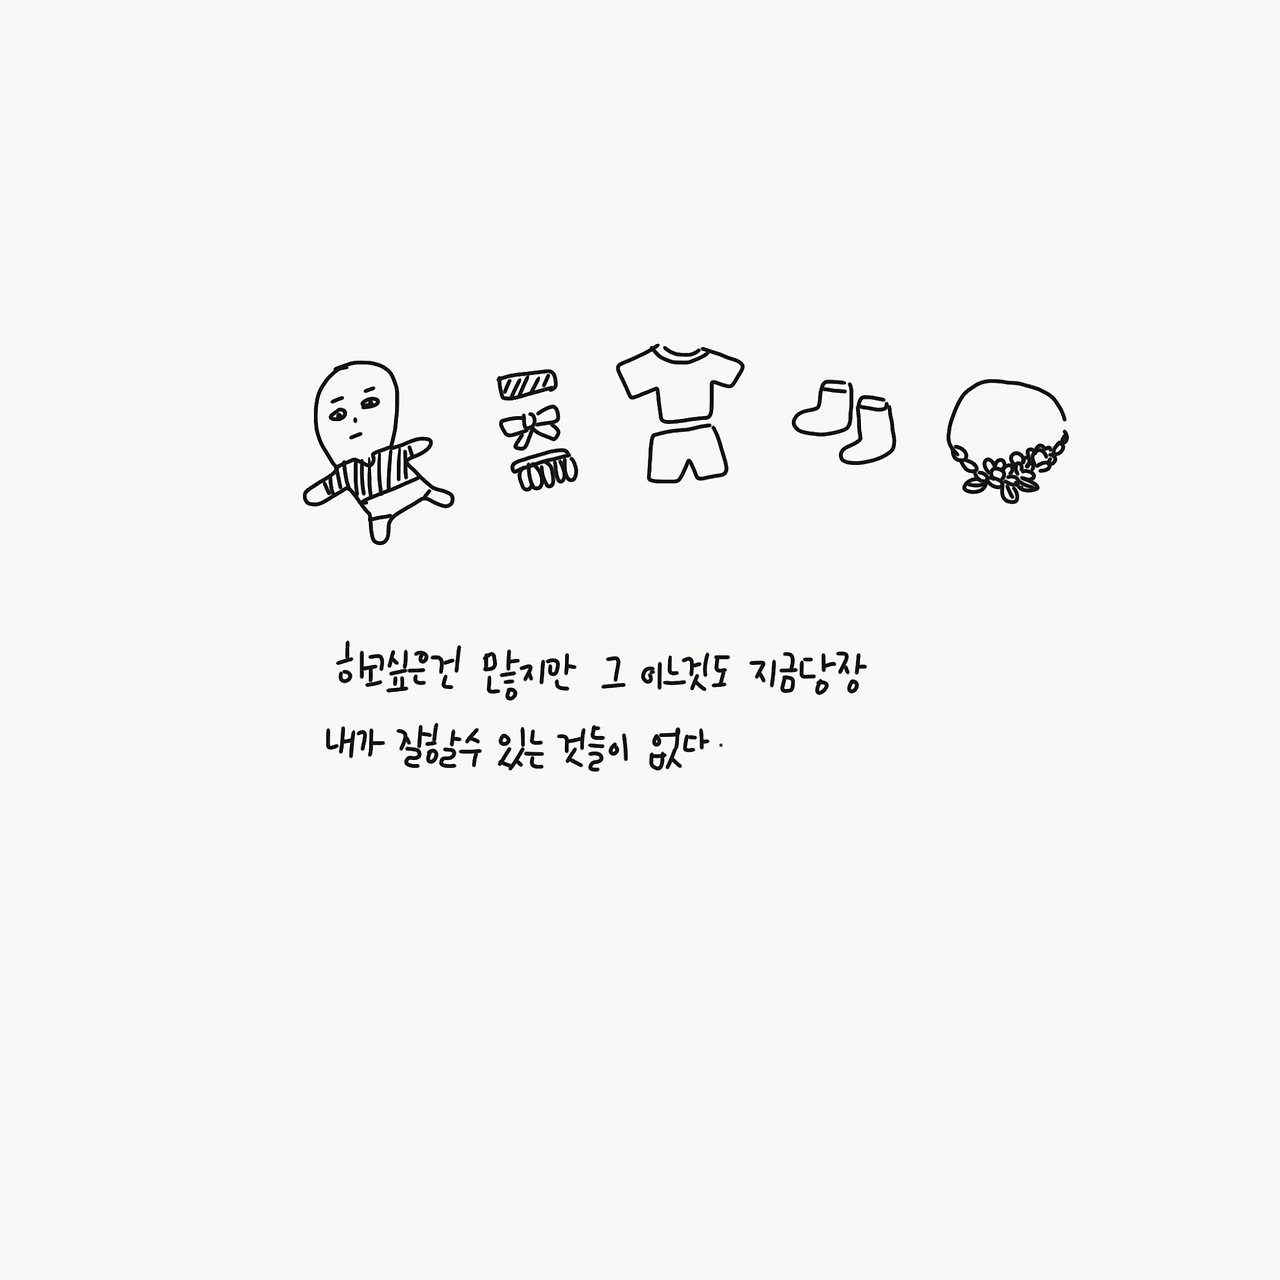 하고싶은건 많지만 그 어느것도 지금당장
내가 잘할수 있는 것들이 없다.